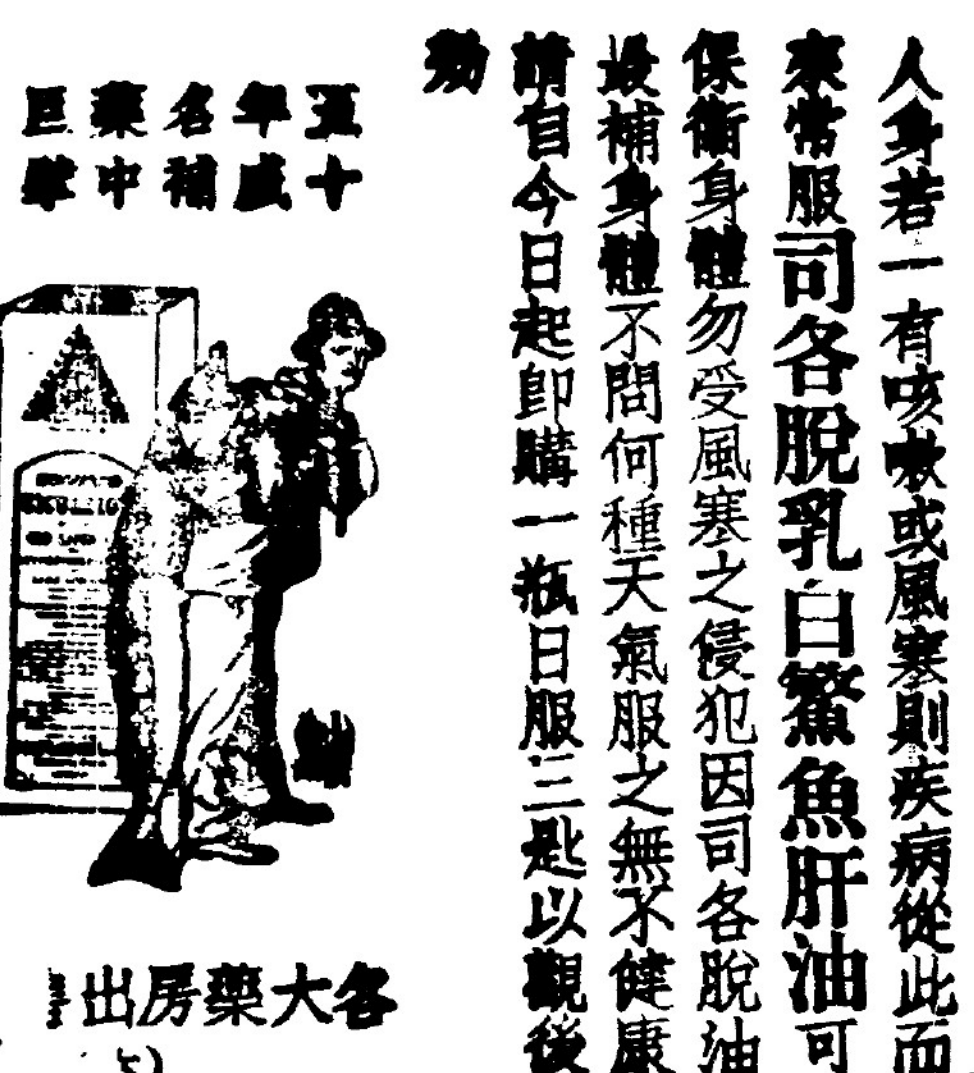 人身若一有咳嗽或風寒則疾病從此而
來常服司各脫乳白鰵魚肝油可
保衛身體勿受風塞之侵犯因司各脫油
最補身體不問何種天氣服之無不健康
請自今日起即購一瓶日服三匙以觀後
効
五十
年盛
名補
藥中
巨擘
各大藥房出